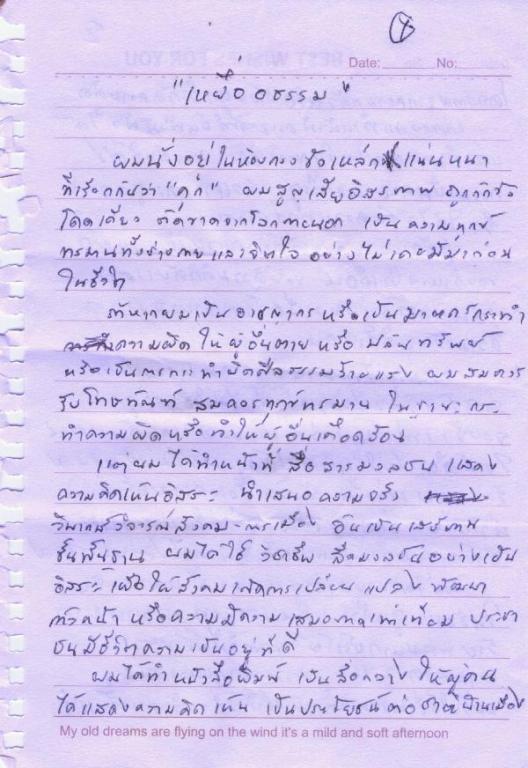 4
Date: No:
"เหยื่ออธรรม"
ผมนั่งอยู่ในห้องกรงขังเหล็ก แน่นหนา
ที่เรียกกันว่า "คุก" ผมสูญเสียอิสรภาพ ถูกกักขัง
โดดเดี่ยว ตัดขาดจากโลกภายนอก เป็นความทุกข์
ทรมานทั้งร่างกายและจิตใจ อย่างไม่เคยมีมาก่อน
ในชีวิต
ถ้าหากผมเป็นอาชญากร หรือเป็นฆาตกรกระทำ
ความผิด ให้ผู้อื่นตาย หรือ ปล้นทรัพย์
หรือเป็นการกระทำผิดศีลธรรมร้ายแรง ผมสมควร
รับโทษทัณฑ์ สมควรทุกข์ทรมาน ในฐานะ
ทำความผิดหรือทำให้ผู้อื่นเดือดร้อน
แต่ผมได้ทำหน้าที่ สื่อสารมวลชน แสดง
ความคิดเห็นอิสระ นำเสนอความจริง
วิพากษ์วิจารณ์สังคม-การเมือง อันเป็นเสรีภาพ
ขั้นพื้นฐาน ผมได้ใช้ วิชาชีพ สื่อมวลชนอย่างเป็น
อิสระ เพื่อให้สังคมเกิดการเปลี่ยนแปลง พัฒนา
ก้าวหน้า หรือความมีความ เสมอภาคเท่าเทียม ประชา
ชนมีชีวิตความเป็นอยู่ที่ดี
ผมได้ทำหนังสือพิมพ์ เป็นสื่อกลาง ให้ผู้คน
ได้แสดงความคิดเห็น เป็นประโยชน์ต่อชาติบ้านเมือง
My old dreams are flying on the wind it's a mild and soft afternoon